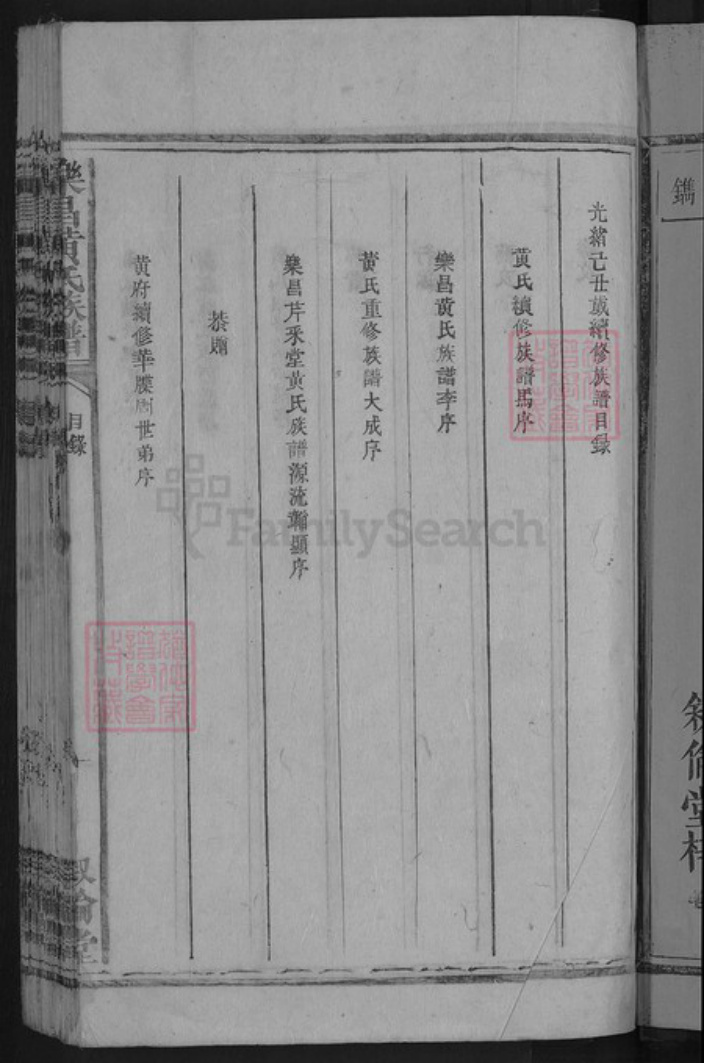 光緒己丑歲續修族譜目錄
黃氏續修族譜馬序
樂昌黃氏族譜李序
黃氏重修族譜大成序
樂昌芹釆堂黃氏族譜源流翰顯序
恭贈
黃府續修華牒周世弟序
樂昌黃氏族譜
目錄
叙倫堂
鐫
叙倫堂梓
FamilySearch